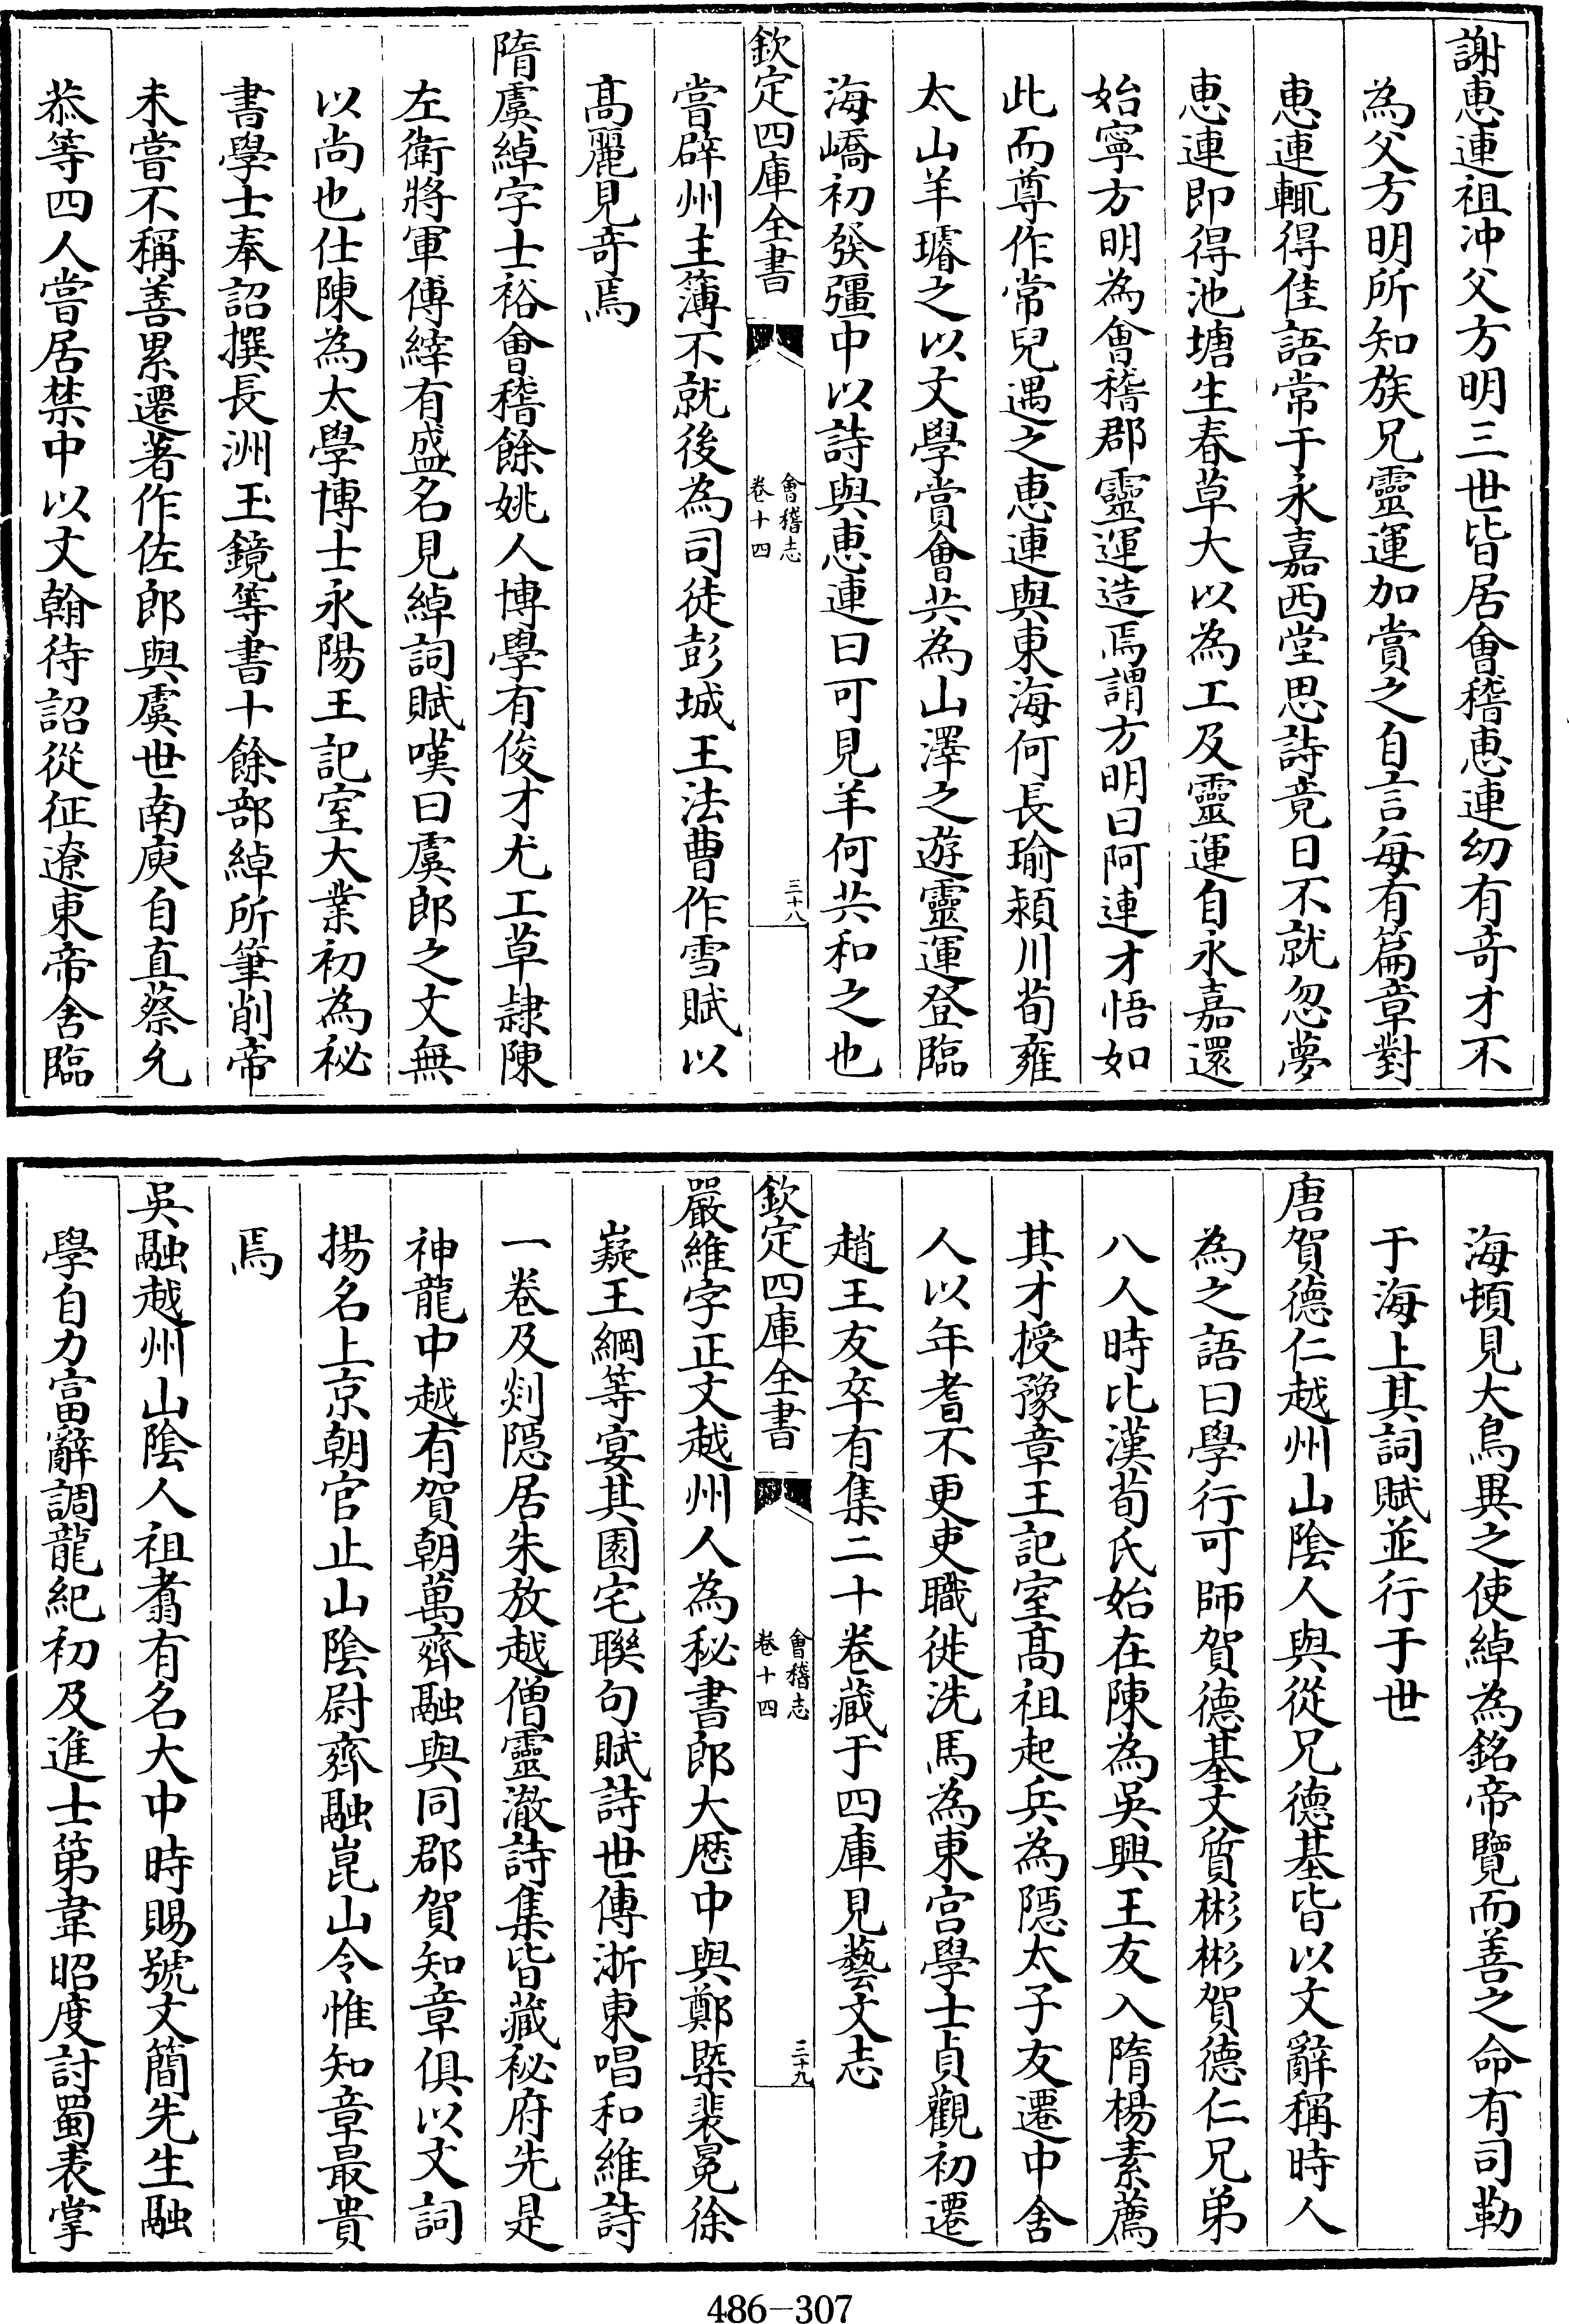 謝恵連祖沖父方明三世皆居會稽恵連幼有奇才不
為父方明所知族兄靈運加賞之自言每有篇章對
恵連輒得佳語常于永嘉西堂思詩竟日不就忽夢
恵連即得池塘生春草大以為工及靈運自永嘉還
始寧方明為會稽郡靈運造焉謂方明曰阿連才悟如
此而尊作常兒遇之恵連與東海何長瑜潁川荀雍
太山羊璿之以文學賞會共為山澤之遊靈運登臨
海嶠初發彊中以詩與恵連曰可見羊何共和之也
欽定四庫全書
會稽志
卷十四
三十八
嘗辟州主簿不就後為司徒彭城王法曹作雪賦以
髙麗見奇焉
隋虞綽字士裕會稽餘姚人博學有俊才尤工草隸陳
左衛將軍傅縡有盛名見綽詞賦嘆曰虞郎之文無
以尚也仕陳為太學博士永陽王記室大業初為秘
書學士奉詔撰長洲玉鏡等書十餘部綽所筆削帝
未嘗不稱善累遷著作佐郎與虞世南庾自直蔡允
恭等四人嘗居禁中以文翰待詔從征遼東帝舍臨
海頓見大鳥異之使綽為銘帝覽而善之命有司勒
于海上其詞賦並行于世
唐賀德仁越州山陰人與從兄德基皆以文辭稱時人
為之語曰學行可師賀德基文質彬彬賀德仁兄弟
八人時比漢荀氏始在陳為吳興王友入隋楊素薦
其才授豫章王記室髙祖起兵為隱太子友遷中舍
人以年耆不更吏職徙洗馬為東宮學士貞觀初遷
趙王友卒有集二十卷藏于四庫見藝文志
欽定四庫全書
會稽志
卷十四
三十九
嚴維字正文越州人為秘書郎大厯中與鄭槩裴冕徐
嶷王綱等宴其園宅聯句賦詩世傳浙東唱和維詩
一卷及剡隱居朱放越僧靈澈詩集皆藏秘府先是
神龍中越有賀朝萬齊融與同郡賀知章俱以文詞
揚名上京朝官止山陰尉齊融崑山令惟知章最貴
焉
吳融越州山陰人祖翥有名大中時賜號文簡先生融
學自力富辭調龍紀初及進士第韋昭度討蜀表掌
486-307